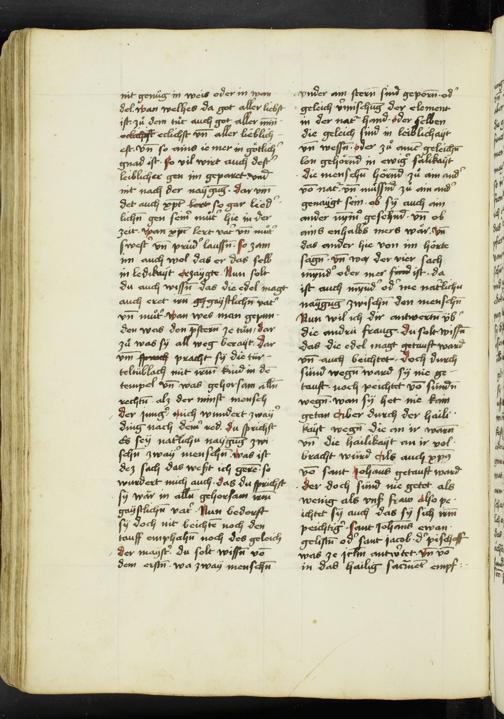 nit genůg in weis oder in wan
del. wan welhes da got aller liebst
ist. zů dem tůt auch got aller
eclichst vn̄ aller lieblich
est. Vn̄ so ains ie mer in götlich
gnad ist. so vil wirt auch dest
leiblicher gen im geparet vnd
nit nach der naÿgug. dar vm̄
det auch xp̄t so gar lied
lichn̄ gen sein̄ můt hie in der
zeit. wan xp̄t lert vat vn̄ můt
swest vn̄ průd laussn̄. so zam
im auch wol das er das selb
in ledikait erzaÿgte. Nun solt
du auch wissn̄ das die edel magt
auch eret irn̄ gaÿstlichn̄ vat
vn̄ můt. wan wes man
den was den ze tůn. dar
zů was sÿ all weg berait. dar
vn̄ pracht sÿ die tür
teltüblach mit irm̄ kind in de
tempel vn̄ was gehorsam alln̄
rechtn̄ als der minst mensch
der iung mich wundert zwaÿ
ding nach dein̄ red. du sprichst
es seÿ natlichn̄ naÿgug zwi
schn̄ zwaÿ menschn̄. was ist
dez sach das west ich gere. so
wundert mich auch das du sprichst
sÿ wär in alln̄ gehorsam irm̄
gaÿstlichn̄ vat. Nun bedorft
sÿ doch nit beicht noch den
tauff emphahn̄ noch des geleich
der maÿst. du solt wissn̄ vō
dem erstn̄. wa zwaÿ menschn̄
vnder aim stern̄ sind geporn̄. od
geleich vmschüg der element
in der nat hand. oder selben
die geleich sind in leiblichaÿt
vn̄ wessn̄. oder zů aine geleichn̄
lon gehörnd in ewig sälikaÿt
die menschn̄ hörnd zů ain and
vō nat. vn̄ müssnd zů ain and
genaÿgt sein. ob sÿ auch ain
ander nÿm̄ gesehnd. vn̄ ob
ains enhalb mers wär. vn̄
das ander hie von im horte
sagn̄. vn̄ wa der vier sach
mÿnd oder mer sind ist. da
ist auch mÿnd od me natlichn̄
naÿgug zwischn̄ den menschn̄
Nun wil ich dir antwertn̄ vb
die andrn̄ fraug. du solt wissn̄
das die edel magt getauft ward
vn̄ auch beichtet. doch durch
sünd wegn̄ ward sÿ nie ge
tauft. noch peichtet vō sündn̄
wegn̄. wan sÿ het nie kain
getan. Aber durch der haili
kaÿt wegn̄ die an ir warn̄
vn̄ die hailikaÿt an ir vol
bracht würd. Als auch xp̄s
vō sant Johans getauft ward
der doch sünd nie getet. als
wenig als vns fraw. Also pe
ichtet sÿ auch das sÿ sich irm̄
peichtig. sant Johans ewan
gelistn̄ od sant jacob d pischoff
was ze jrlm̄ antwrtet. vn̄ vō
in das hailig sacmēt empf